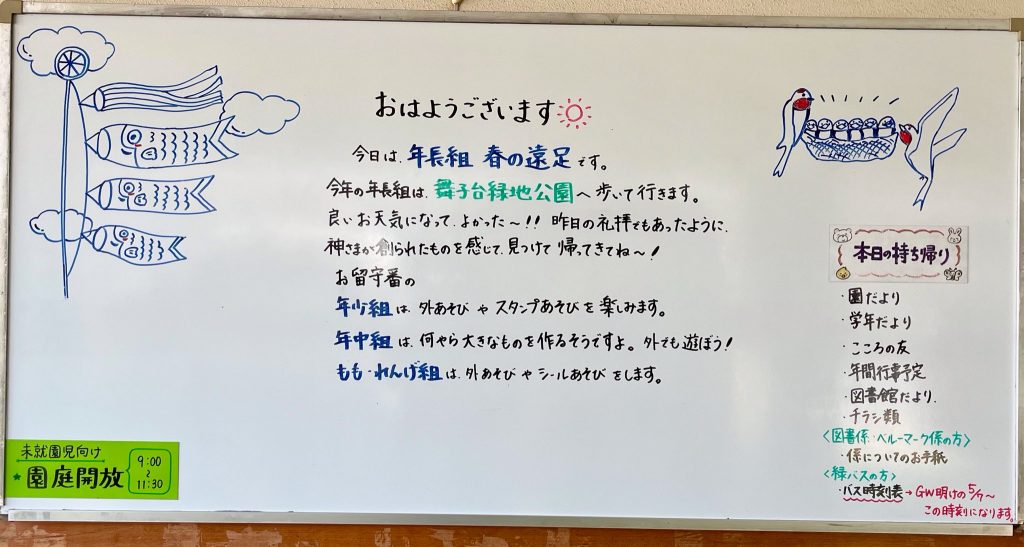 おはようございます
今日は、年長組 春の遠足です。
今年の年長組は、舞子台緑地公園へ歩いて行きます。
良いお天気になって、よかった〜!! 昨日の礼拝でもあったように、
神さまが創られたものを感じて、見つけて帰ってきてね〜!
お留守番の
年少組は、外あそびやスタンプあそびを楽しみます。
年中組は、何やら大きなものを作るそうですよ。外でも遊ぼう!
もも・れんげ組は、外あそびやシールあそびをします。
本日の持ち帰り
・園だより
・学年だより
・こころの友
・年間行事予定
・図書館だより
・チラシ類
〈図書係・ベルーマーク係の方〉
・係についてのお手紙
〈緑バスの方〉
・バス時刻表→GW明けの5/7〜
この時刻になります。
未就園児向け
★園庭開放
9:00
〜
11:30